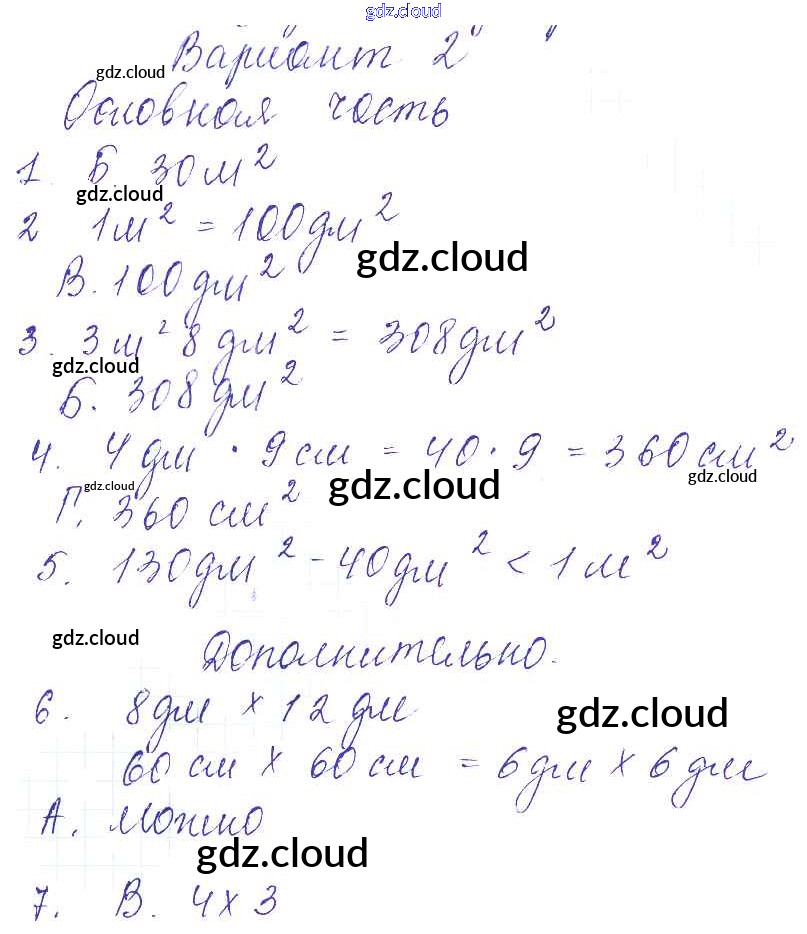 gdz.cloud
Вариант 2
gdz.cloud
Основная часть
1. Б 30 м²
gdz.cloud
2 1 м² = 100 дм²
gdz.cloud
В. 100 дм²
3. 3 м² 8 дм² = 308 дм²
gdz.cloud
Б. 308 дм²
4. 4 дм · 9 см = 40 · 9 = 360 см²
gdz.cloud gdz.cloud gdz.cloud
Г. 360 см²
5. 130 дм² - 40 дм² < 1 м²
gdz.cloud
Дополнительно.
6. 8 дм × 12 дм
gdz.cloud
60 см × 60 см = 6 дм × 6 дм
А. Можно
gdz.cloud
7. В. 4 × 3